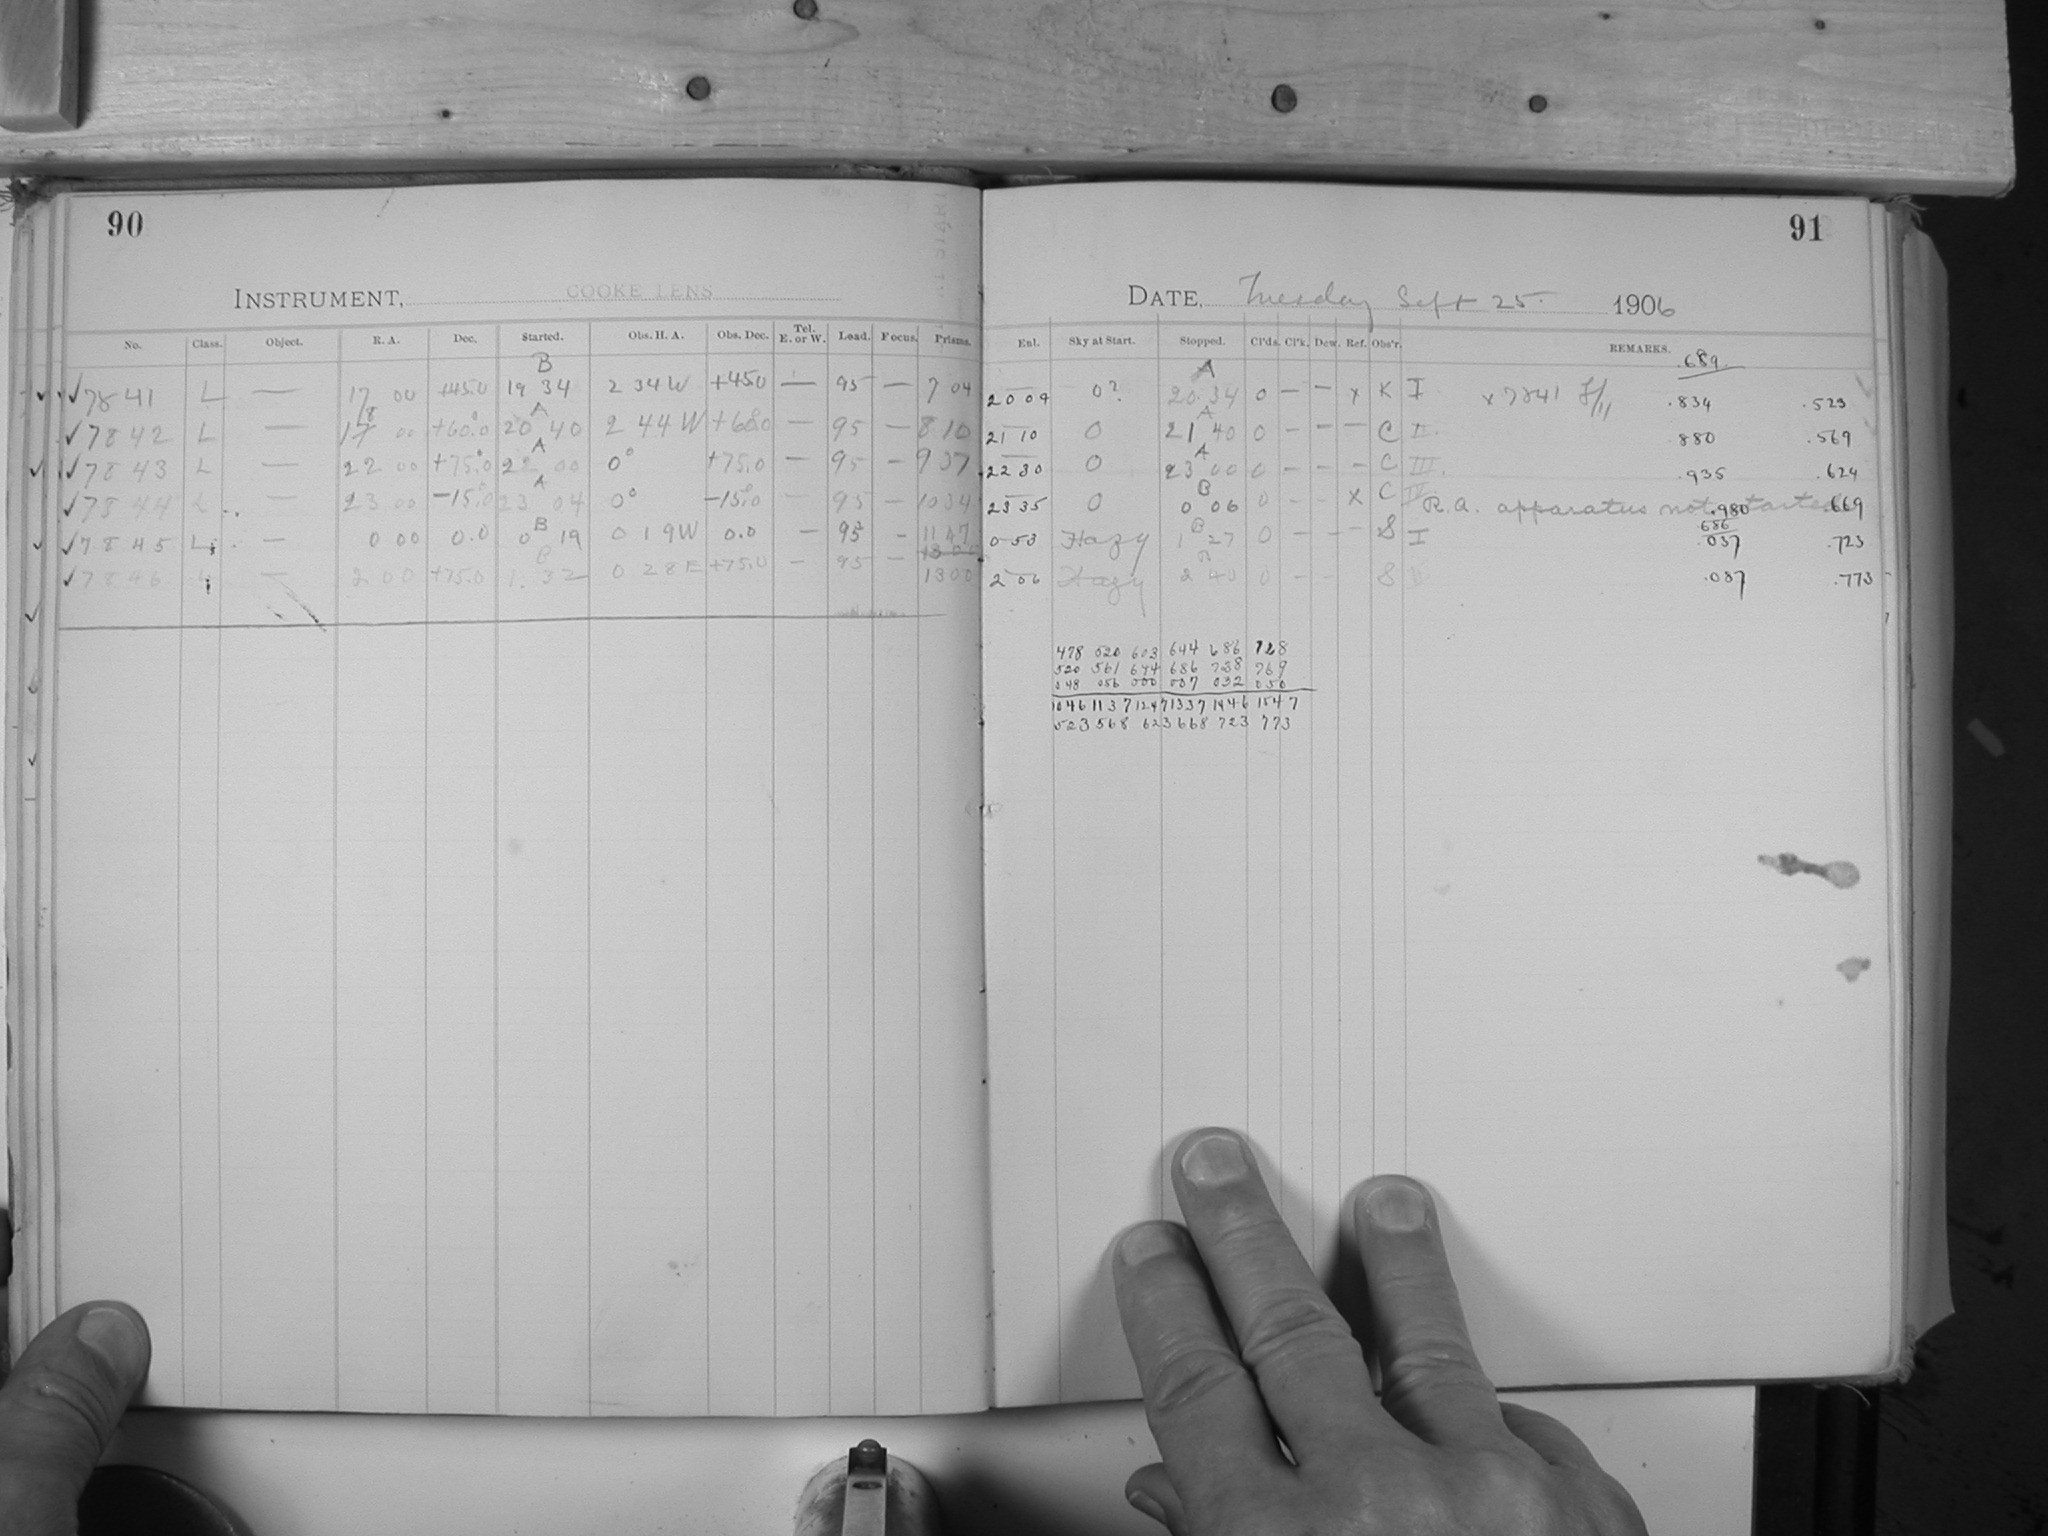 90
INSTRUMENT, COOKE LENS
No. Class. Object. R. A. Dec. Started. Obs. H. A. Obs. Dec. Tel. E. or W. Load. Focus. Prisms.
B
✓7841 L — 17 00 +45.0 19 34 2 34 W +45.0 — 95 — 7 04
18 A
✓7842 L — 17 00 +60.0 20 40 2 44 W +60.0 — 95 — 8 10
A
✓7843 L — 22 00 +75.0 22 00 0° +75.0 — 95 — 9 37
A
✓7844 L — 23 00 −15.0 23 04 0° −15.0 — 95 — 10 34
B
✓7845 L — 0 00 0.0 0 19 0 19 W 0.0 — 95 — 11 47
C
✓7846 L — 2 00 +75.0 1 32 0 28 E +75.0 — 95 — 13 00
91
DATE, Tuesday Sept 25. 1906
Ent. Sky at Start. Stopped. Cl'ds. Cl'k. Dew. Ref. Obs'r. REMARKS.
.689
A
20 04 0? 20 34 0 — — x K I x 7841 8/11 .834 .523
A
21 10 0 21 40 0 — — — C II. .880 .569
A
22 30 0 23 00 0 — — — C III. .935 .624
B
23 35 0 0 06 0 — — x C IV R.A. apparatus not started .980 .669
686
B
0 53 Hazy 1 27 0 — — — S I .037 .723
2 06 Hazy 2 40 0 — — S .087 .773
478 520 603 644 686 728
520 561 644 686 728 769
048 056 000 007 032 050
1046 1137 1247 1337 1446 1547
523 568 623 668 723 773